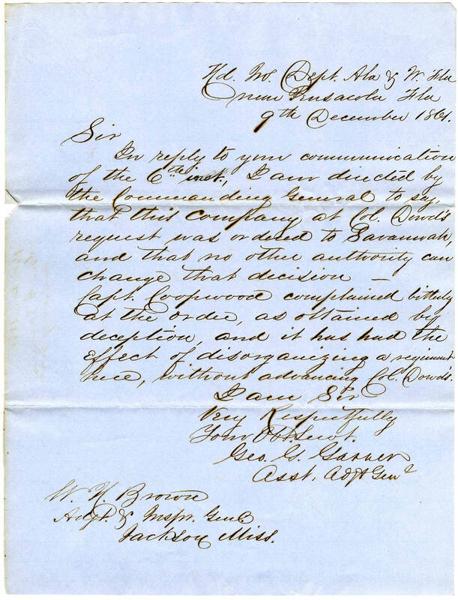 Hd. Qrs. Dept. Ala & W. Fla
near Pensacola Fla
9th December 1861.
Sir
In reply to your communication
of the 6th inst., I am directed by
the Commanding General to say,
that this company at Col. Dowd's
request was ordered to Savannah,
and that no other authority can
change that decision —
Capt. Coopwood complained bitterly
at the order, as obtained by
deception, and it has had the
effect of disorganizing a regiment
here, without advancing Col. Dowd's.
I am Sir
Very Respectfully
Your Obt Servt.
Geo. G. Garner
Asst. Adjt Genl
W. H. Brown
Adjt. & Inspr. Genl
Jackson Miss.